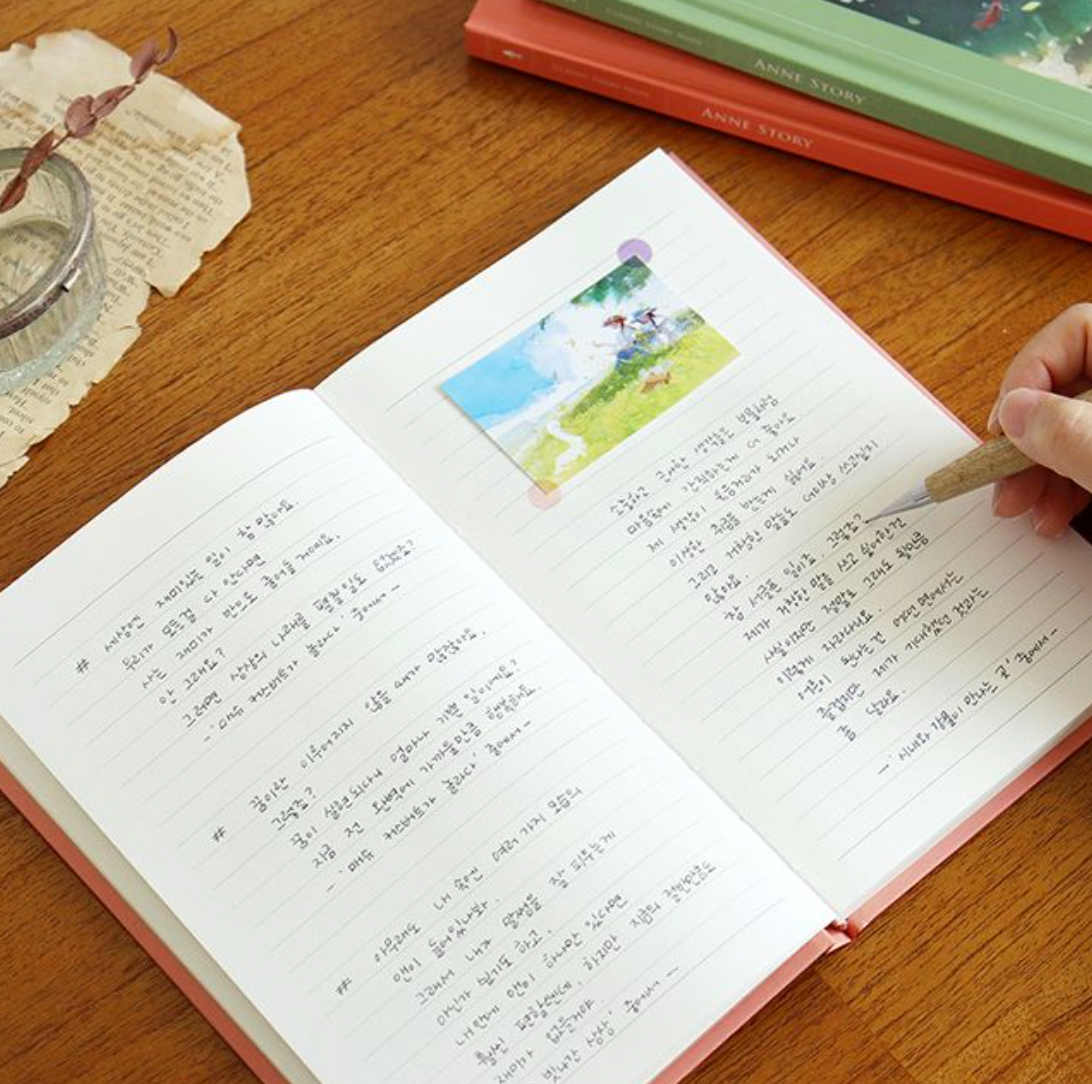 ANNE STORY
ANNE STORY
# 세상엔 재미있는 일이 참 많아요.
우리가 모든걸 다 안다면
사는 재미가 반으로 줄어들 거예요.
안 그래요?
그러면 상상의 나래를 펼칠일도 없겠죠?
- '매튜 커스버트가 놀라다' 중에서 -
# 꿈이란 이루어지지 않을 때가 많잖아요.
그렇죠?
꿈이 실현되다니 얼마나 기쁜 일이에요?
지금 전 완벽에 가까울만큼 행복해요.
- '매튜 커스버트가 놀라다' 중에서 -
# 아무래도 내 속엔 여러 가지 모습의
앤이 들어있나봐.
그래서 내가 말썽을 잘 피우는게
아닌가 싶기도 하고.
내안에 앤이 하나만 있다면
훨씬 편할텐데, 하지만 지금의 절반만큼도
재미가 없을거야.
빗나간 상상' 중에서 -
소중하고 근사한 생각들은 보물처럼
마음속에 간직하는게 더 좋아요
제 생각이 웃음거리가 되거나
이상한 취급을 받는게 싫어요.
그리고 거창한 말들도 더이상 쓰고싶지
않아요.
참 서글픈 일이죠. 그렇죠?
제가 거창한 말을 쓰고 싶어한건
사실이지만 정말로 그래도 될만큼
이렇게 자라다니요.
어른이 된다는 건 어떤 면에서는
즐겁지만 제가 기대했던 것과는
좀 달라요.
- '시내와 강물이 만나는 곳' 중에서 -